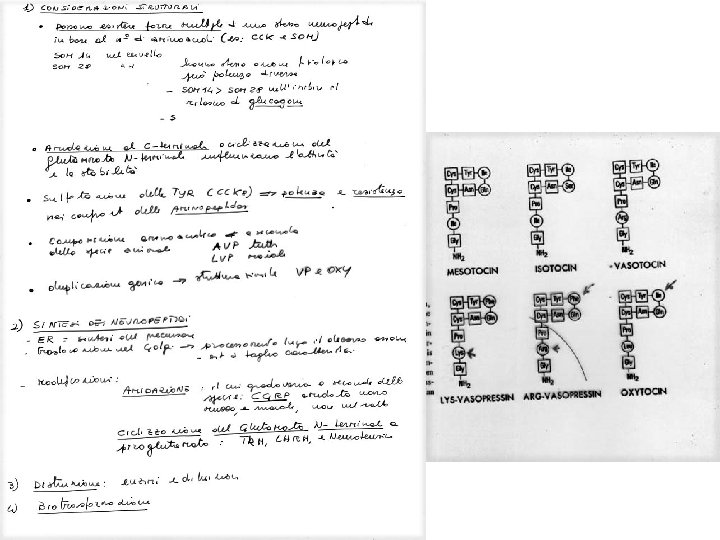 1) CONSIDERAZIONI STRUTTURALI
• Possono esistere forme multiple di uno stesso neuropeptide
in base al n° di aminoacidi (es: CCK e SOM)
SOM 14 nel cervello
SOM 28 " "
hanno stessa azione biologica
però potenza diversa
- SOM14 > SOM28 nell'inibire il
rilascio di glucagone
- S
• Amidazione al C-terminale o ciclizzazione del
glutammato N-terminale influenzano l'attività
e la stabilità
• Sulfatazione delle TYR (CCK8) => potenza e resistenza
nei confronti delle Aminopeptidasi
• Composizione aminoacidica ≠ a seconda
della specie animale AVP tutti
LVP maiali
• duplicazione genica → struttura simile VP e OXY
2) SINTESI DEI NEUROPEPTIDI
- ER = sintesi del precursore
- Traslocazione nel Golgi → processamento lungo il discorso assone
- siti di taglio caratteristici
- Modificazioni:
AMIDAZIONE : il cui grado varia a seconda della
specie: CGRP amidato uomo
e maiale, non nel ratto
Ciclizzazione del Glutammato N-terminale a
piroglutammato : TRH, LHRH, e Neurotensina
3) Distruzione: enzimi e diffusione
4) Biotrasformazione
Cys Tyr Ile
Cys Asn Gln
Pro
Ile
Gly
NH2
MESOTOCIN
Cys Tyr Ile
Cys Asn Ser
Pro
Ile
Gly
NH2
ISOTOCIN
Cys Tyr Ile
Cys Asn Gln
Pro
Arg
Gly
NH2
VASOTOCIN
Cys Tyr Phe
Cys Asn Gln
Pro
Lys
Gly
NH2
LYS-VASOPRESSIN
Cys Tyr Phe
Cys Asn Gln
Pro
Arg
Gly
NH2
ARG-VASOPRESSIN
Cys Tyr Ile
Cys Asn Gln
Pro
Leu
Gly
NH2
OXYTOCIN